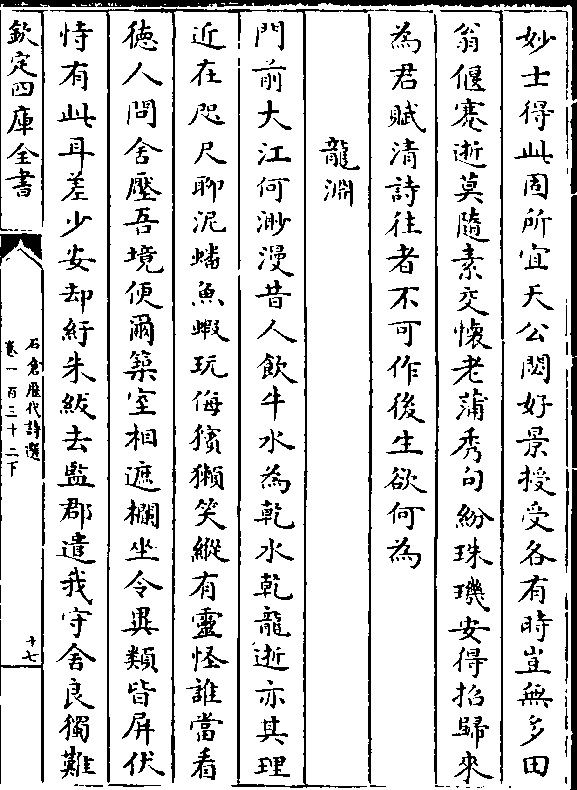 妙士得此固所宜天公閟好景授受各有時豈無多田
翁偃蹇逝莫隨素交懷老蒲秀句紛珠璣安得招歸來
為君賦清詩往者不可作後生欲何為
龍淵
門前大江何渺漫昔人飲牛水為乾水乾龍逝亦其理
近在咫尺聊泥蟠魚蝦玩侮獱獺笑縱有靈怪誰當看
徳人問舍壓吾境便爾築室相遮欄坐令異類皆屏伏
恃有此耳差少安却紆朱紱去監郡遣我守舍良獨難
欽定四庫全書
石倉歷代詩選
卷一百三十二下
十七